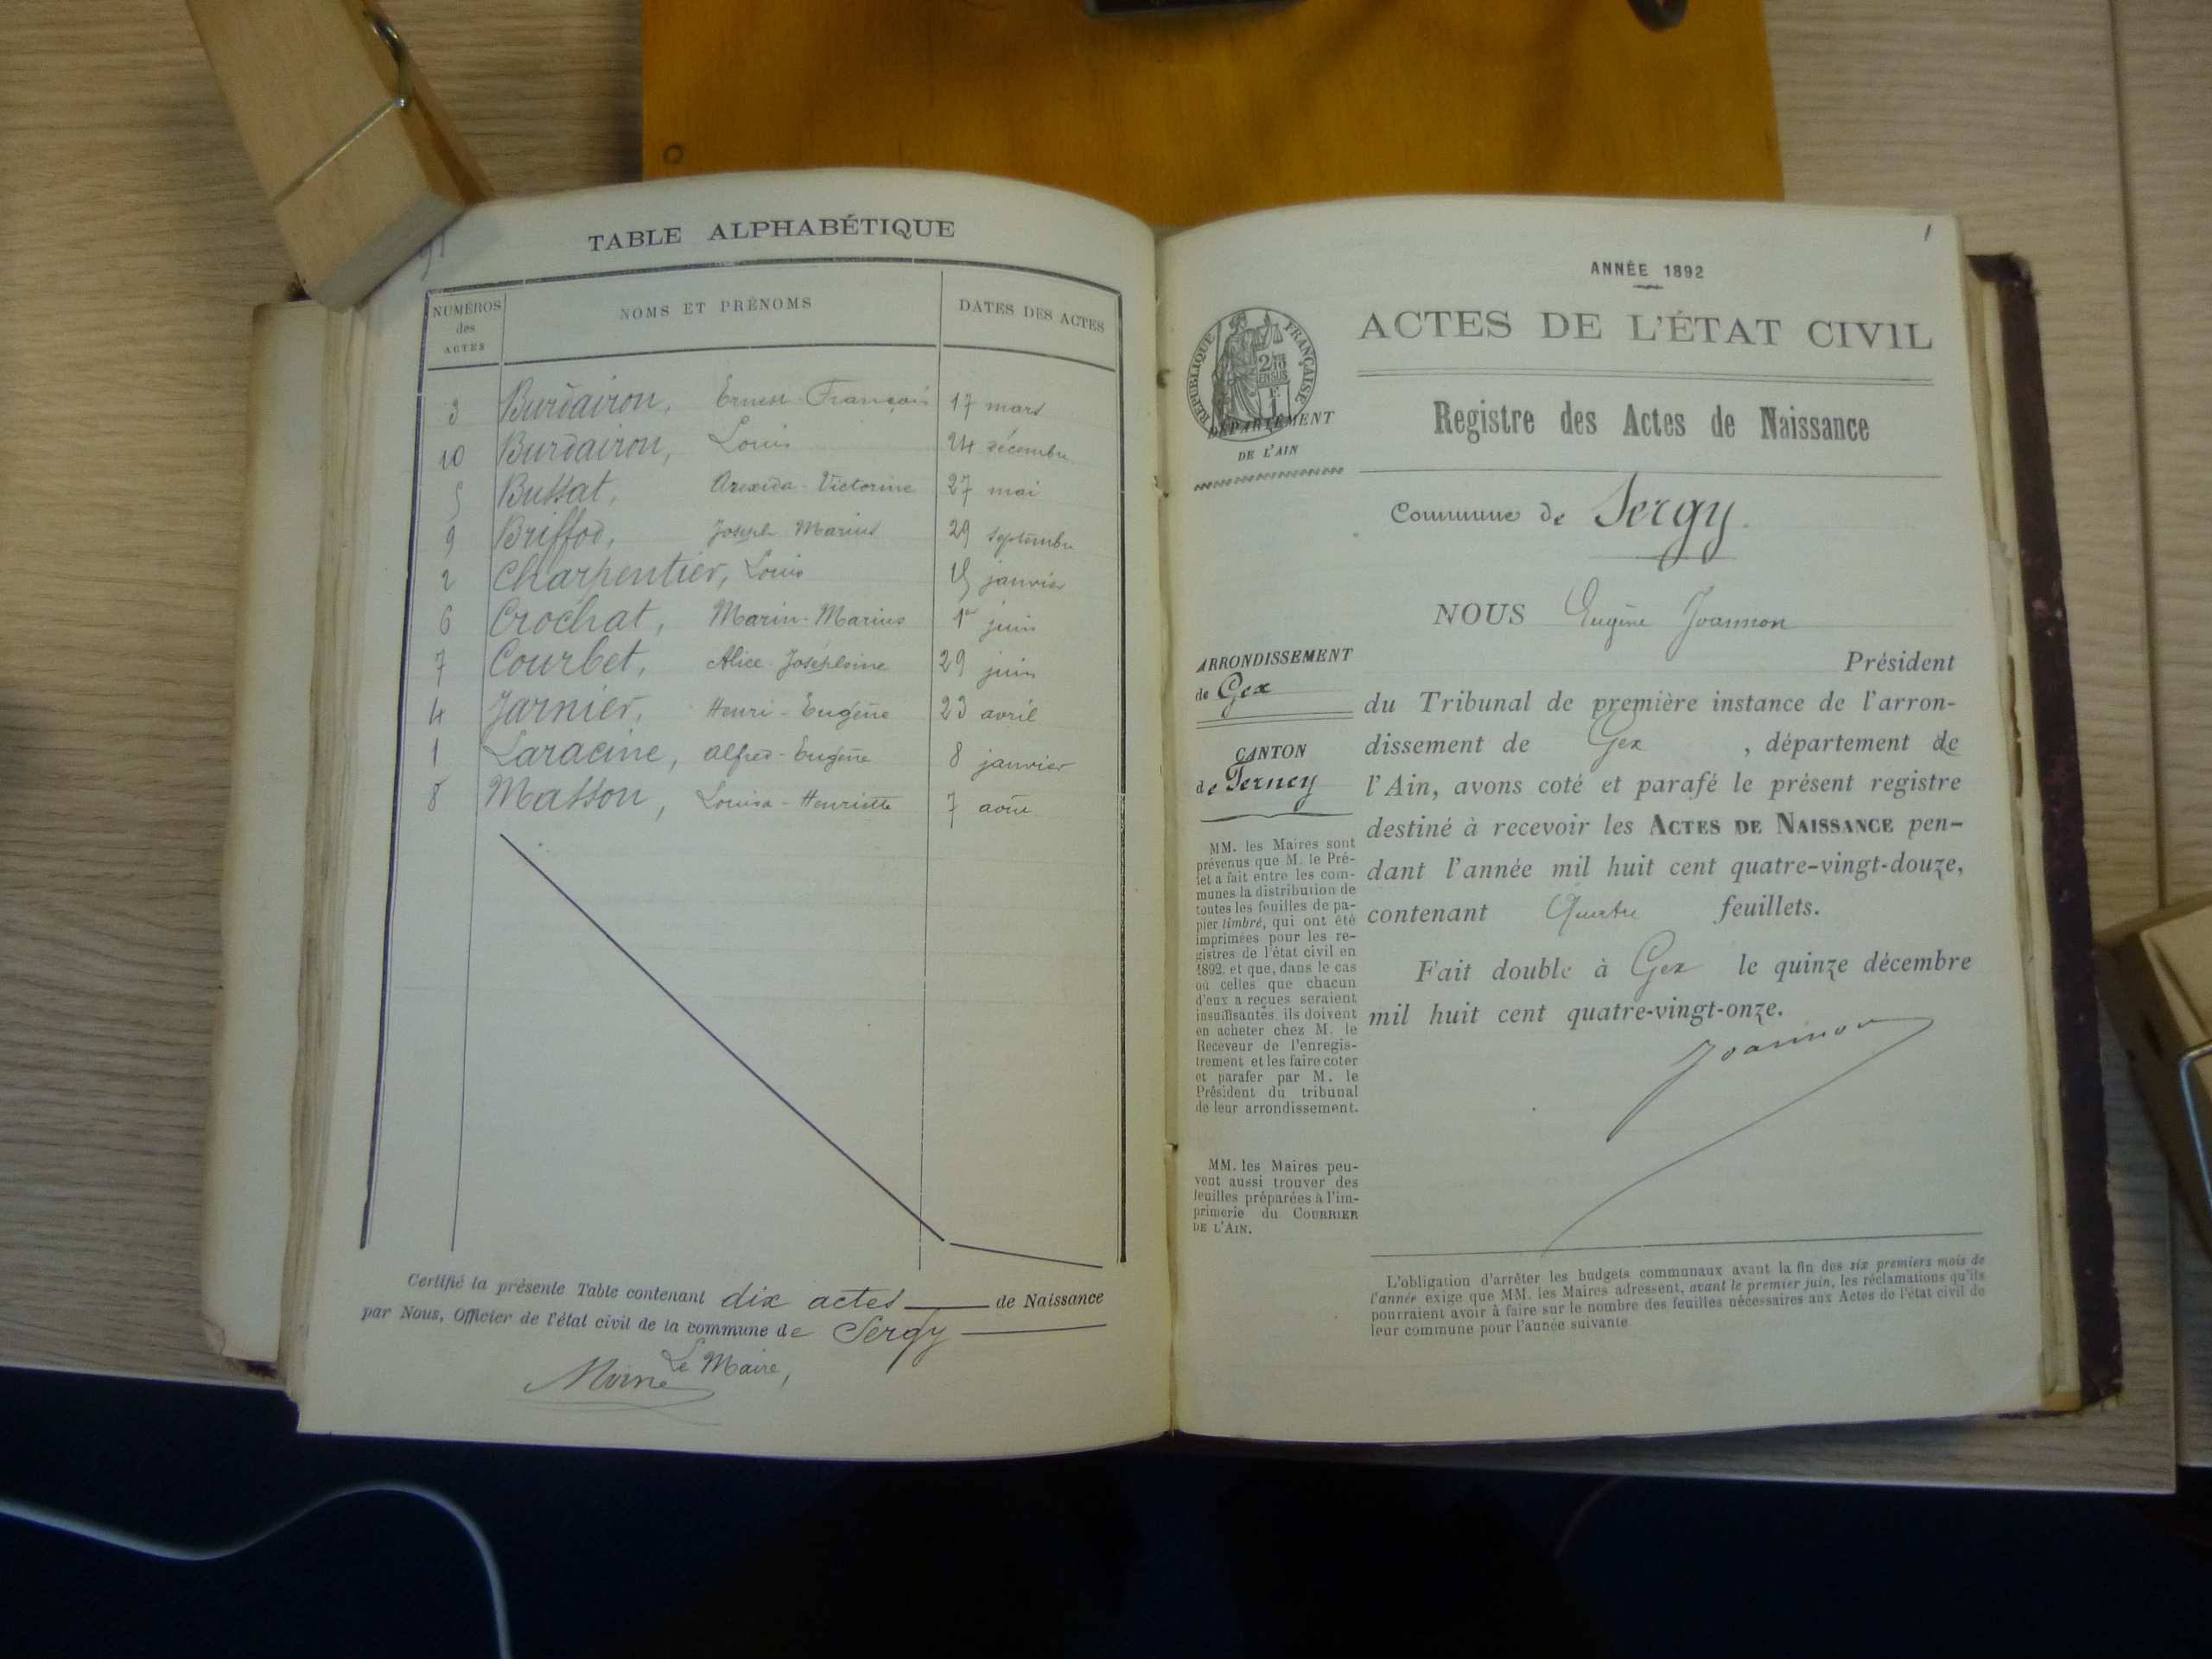 TABLE ALPHABÉTIQUE
NUMÉROS des ACTES NOMS ET PRÉNOMS DATES DES ACTES
3 Burdairon, Ernest François 17 mars
10 Burdairon, Louis 24 décembre
5 Bussat, Victorine 27 mai
9 Briffod, Joseph Marius 29 septembre
2 Charpentier, Louis 15 janvier
6 Crochat, Marin-Marius 1er juin
7 Courbet, Alice Joséphine 29 juin
4 Jarnier, Henri-Eugène 23 avril
1 Laracine, Alfred-Eugène 8 janvier
8 Masson, Louisa-Henriette 7 août
Certifié la présente Table contenant dix actes de Naissance
par Nous, Officier de l'état civil de la commune de Sergy
Le Maire,
1
ANNÉE 1892
RÉPUBLIQUE FRANÇAISE
ACTES DE L'ÉTAT CIVIL
DÉPARTEMENT
DE L'AIN
Registre des Actes de Naissance
Commune de Sergy.
ARRONDISSEMENT
de Gex
CANTON
de Ferney
MM. les Maires sont
prévenus que M. le Pré-
fet a fait entre les com-
munes la distribution de
toutes les feuilles de pa-
pier timbré, qui ont été
imprimées pour les re-
gistres de l'état civil en
1892, et que, dans le cas
où celles que chacun
d'eux a reçues seraient
insuffisantes, ils doivent
en acheter chez M. le
Receveur de l'enregis-
trement et les faire coter
et parafer par M. le
Président du tribunal
de leur arrondissement.
MM. les Maires peu-
vent aussi trouver des
feuilles préparées à l'im-
primerie du COURRIER
DE L'AIN.
NOUS Eugène Joannon
Président
du Tribunal de première instance de l'arron-
dissement de Gex , département de
l'Ain, avons coté et parafé le présent registre
destiné à recevoir les ACTES DE NAISSANCE pen-
dant l'année mil huit cent quatre-vingt-douze,
contenant Quatre feuillets.
Fait double à Gex le quinze décembre
mil huit cent quatre-vingt-onze.
Joannon
L'obligation d'arrêter les budgets communaux avant la fin des six premiers mois de
l'année exige que MM. les Maires adressent, avant le premier juin, les réclamations qu'ils
pourraient avoir à faire sur le nombre des feuilles nécessaires aux Actes de l'état civil de
leur commune pour l'année suivante